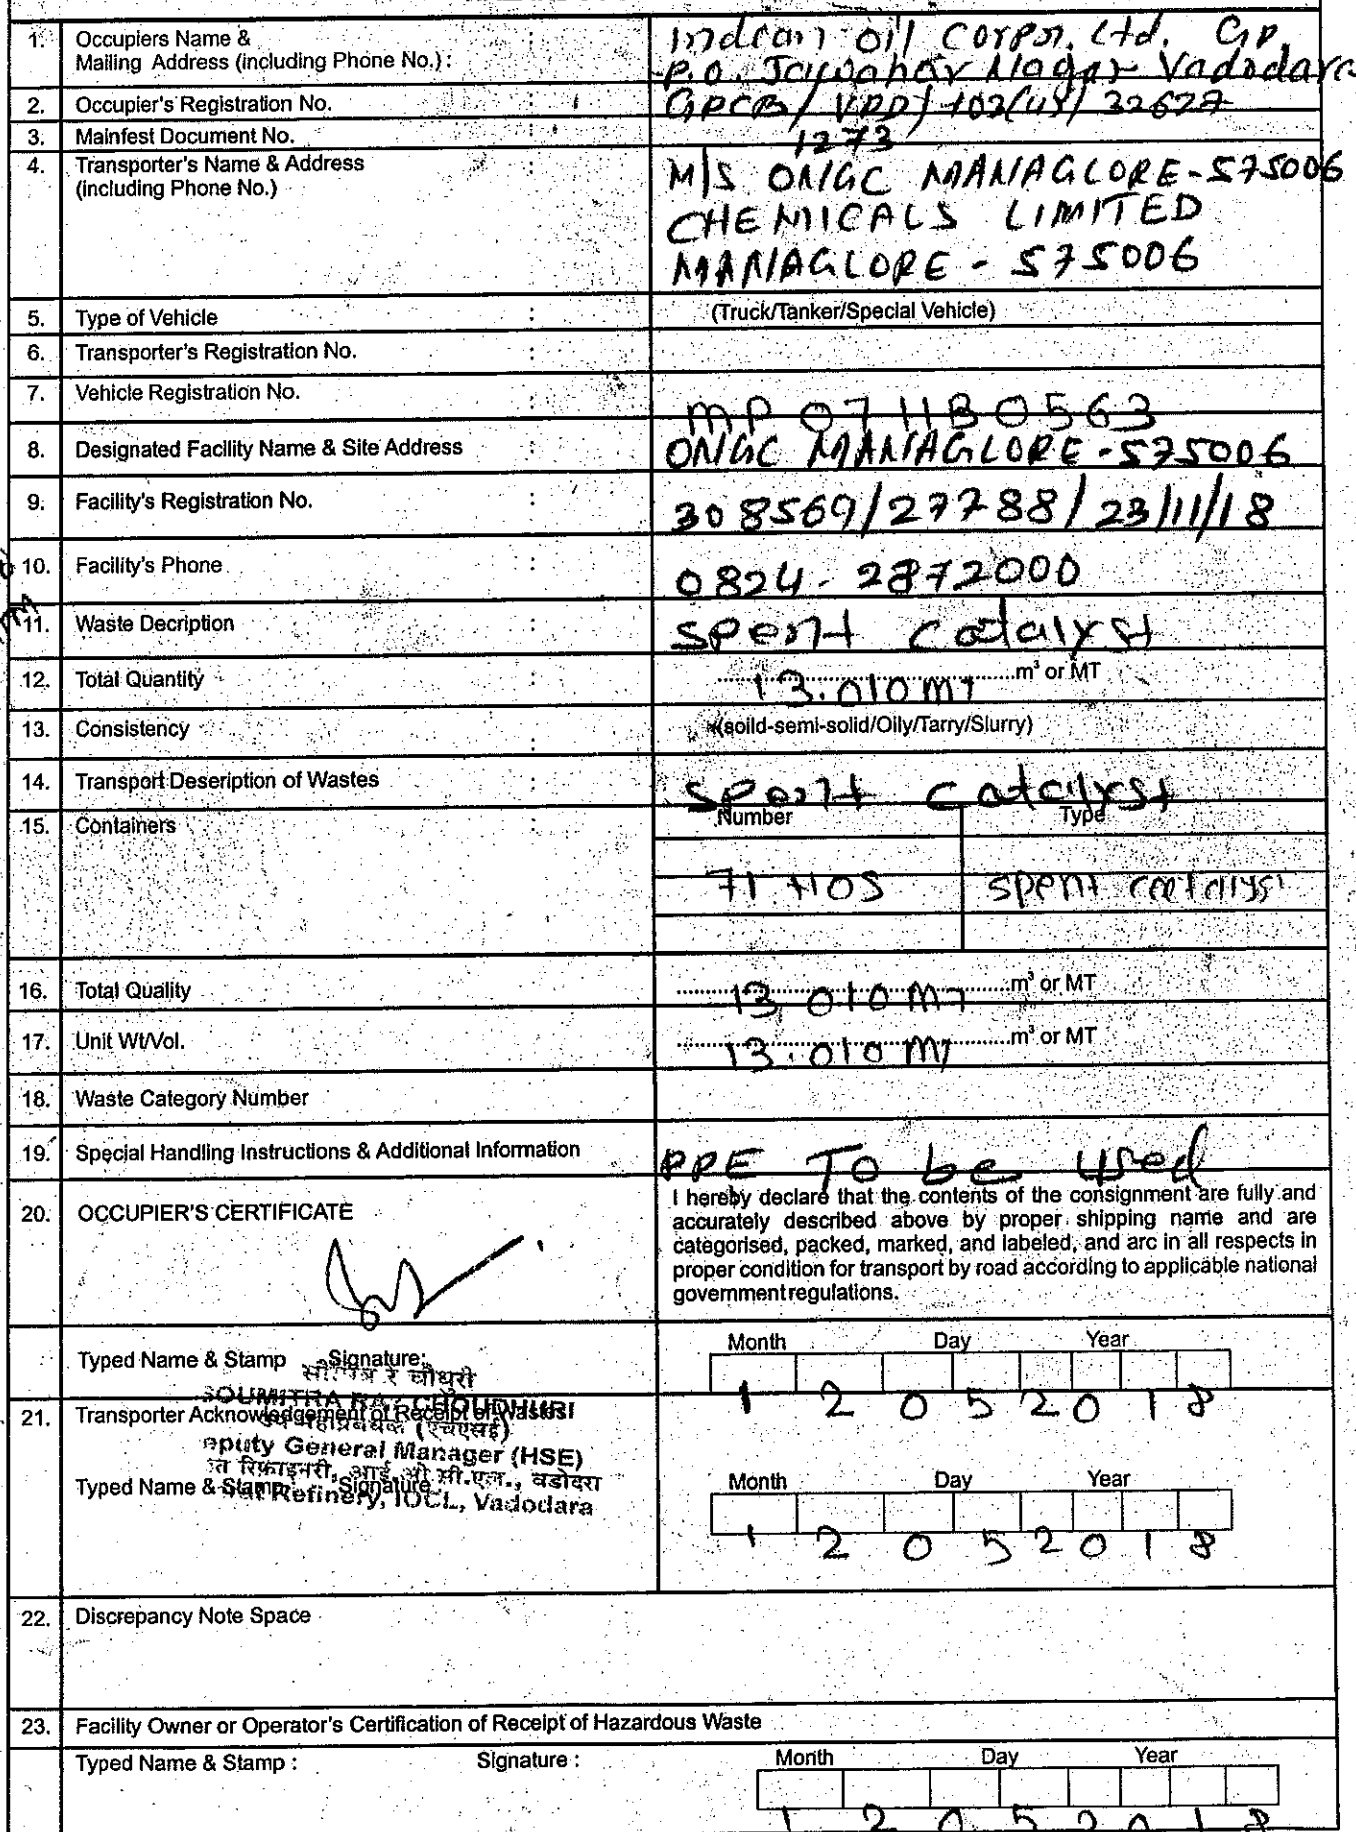 1. Occupiers Name & Indian oil Corpn. Ltd. GP.
Mailing Address (including Phone No.) : P.O. Jawahar Nagar Vadodara
2. Occupier's Registration No. : GPCB/
3. Mainfest Document No. 1273
4. Transporter's Name & Address : M/S ONGC MANAGLORE-575006
(including Phone No.) CHEMICALS LIMITED
MANAGLORE - 575006
5. Type of Vehicle : (Truck/Tanker/Special Vehicle)
6. Transporter's Registration No. :
7. Vehicle Registration No. : MP 07 HB 0563
8. Designated Facility Name & Site Address : ONGC MANAGLORE-575006
9. Facility's Registration No. : 308569/27788/23/11/18
10. Facility's Phone : 0824-2872000
11. Waste Decription Spent catalyst
12. Total Quantity : 13.010 MT m³ or MT
13. Consistency : (soild-semi-solid/Oily/Tarry/Slurry)
14. Transport Deseription of Wastes : Spent catalyst
15. Containers : Number Type
71 Spent catalyst
16. Total Quality 13.010 MT m³ or MT
17. Unit Wt/Vol. 13.010 MT m³ or MT
18. Waste Category Number
19. Special Handling Instructions & Additional Information PPE To be used
20. OCCUPIER'S CERTIFICATE
I hereby declare that the contents of the consignment are fully and
accurately described above by proper shipping name and are
categorised, packed, marked, and labeled, and arc in all respects in
proper condition for transport by road according to applicable national
government regulations.
Month Day Year
Typed Name & Stamp Signature:
रे चौधरी
SOUMITRA RAY CHOUDHURI
1 2 0 5 2 0 1 8
21. Transporter Acknowledgement of Receipt of Wastes
उप महाप्रबंधक (एचएसई)
eputy General Manager (HSE)
त रिफाइनरी, आई.ओ.सी.एल., वडोदरा
Typed Name & Stamp : Signature : Month Day Year
Refinery, IOCL, Vadodara
1 2 0 5 2 0 1 8
22. Discrepancy Note Space
23. Facility Owner or Operator's Certification of Receipt of Hazardous Waste
Typed Name & Stamp : Signature : Month Day Year
1 2 0 5 2 0 1 8